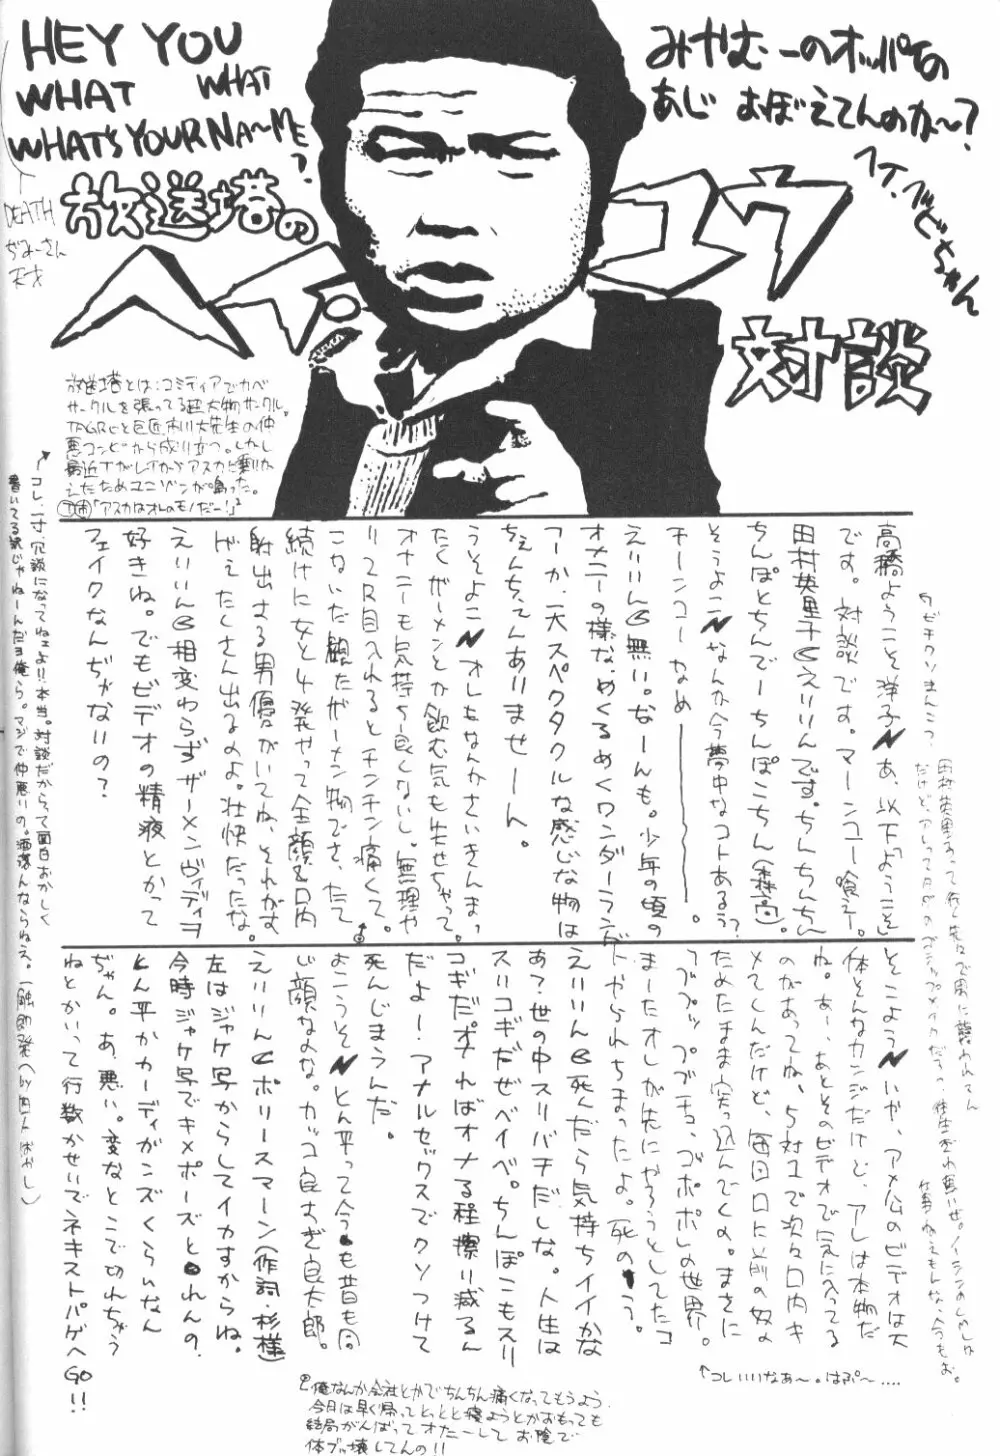 HEY YOU
WHAT WHAT
WHAT'S YOUR NA〜ME?
みやむーのオッパイの
あじ おぼえてんのか〜?
DEATH
ぢみーさん
天才
放送塔の
ヘイ・ユウ
対談
放送塔とは:コミティアでカベ
サークルを張ってる超大物サークル。
TAGRCと巨匠市川大先生の仲
悪コンビから成り立つ。しかし
最近Tがレイからアスカに乗りか
えたためユニゾンが鳴った。
「アスカはオレのモノだー!」
高橋ようこそ洋子 あ、以下「ようこそ」
です。対談です。マーンコー喰え。
田村英里子 えりりんです。ちんちんちん
ちんぽとちんでーちんぽこちん(森高)。
そうよこ なんか今夢中なコトあるぅ?
チーンコーなめ———————。
えりりん 無い。なーんも。少年の頃の
オナニーの様なめくるめくワンダーランド
フーか、一大スペクタクルな感じな物は
ちぇんちぇんありませーん。
うそよこ オレもなんかさいきんまっ
たくザーメンとか飲む気も失せちゃって。
オナニーも気持ち良くないし。無理や
り2尺目入れるとチンチン痛くて。
こないだ観たザーメン物でさ、たて
続けに女と4発やって全顔&口内
射出さる男優がいてね、それがす
げぇたくさん出るのよ。壮快だったな。
えりりん 相変わらずザーメンヴィディヲ
好きね。でもビデオの精液とかって
フェイクなんぢゃないの?
コレ、一寸、冗談になってねェよ!!本当。対談だからって面白おかしく
書いてる訳じゃねーんだヨ俺ら。マジで仲悪いの。洒落んならねえ。
そこよう いや、アメ公のビデオは大
体そんなカンジだけど、アレは本物だ
ね。あー、あとそのビデオで気に入ってる
のがあってね、5対1で次々口内キ
メてくんだけど、毎回口に以前の奴の
ためたまま突っ込んでくの。まさに
プププッ ププチョ、ゴポポポの世界。
まーたオレが先にやろうとしてたコ
トやられちまったよ。死のーう。
えりりん 死んだら気持ちイイかな
あ?世の中スリバチだしな。人生は
スリコギだぜベイベ。ちんぽこもスリ
コギだ。オナればオナる程擦り減るん
だよー。アナルセックスでクソつけて
死んじまうんだ。
よこうそ とん平って今も昔も同
じ顔なのな。カッコ良すぎ良太郎。
えりりん ポリースマーン(作詞・杉様)
左はジャケ写からしてイカすからね。
今時ジャケ写でキメポーズとれんの、
とん平かカーディガンズくらいなん
ぢゃん。あ、悪い。変なとこで切れちゃう
ねとかいって行数かせいでネキストパゲへ
GO!!
↑コレいいなあ〜。はぷ〜....
俺なんか会社とかでちんちん痛くなってもうよう
今日は早く帰ってとっとと寝ようとかおもっても
結局がんばってオナニーして お陰で
体ブッ壊してんの!!